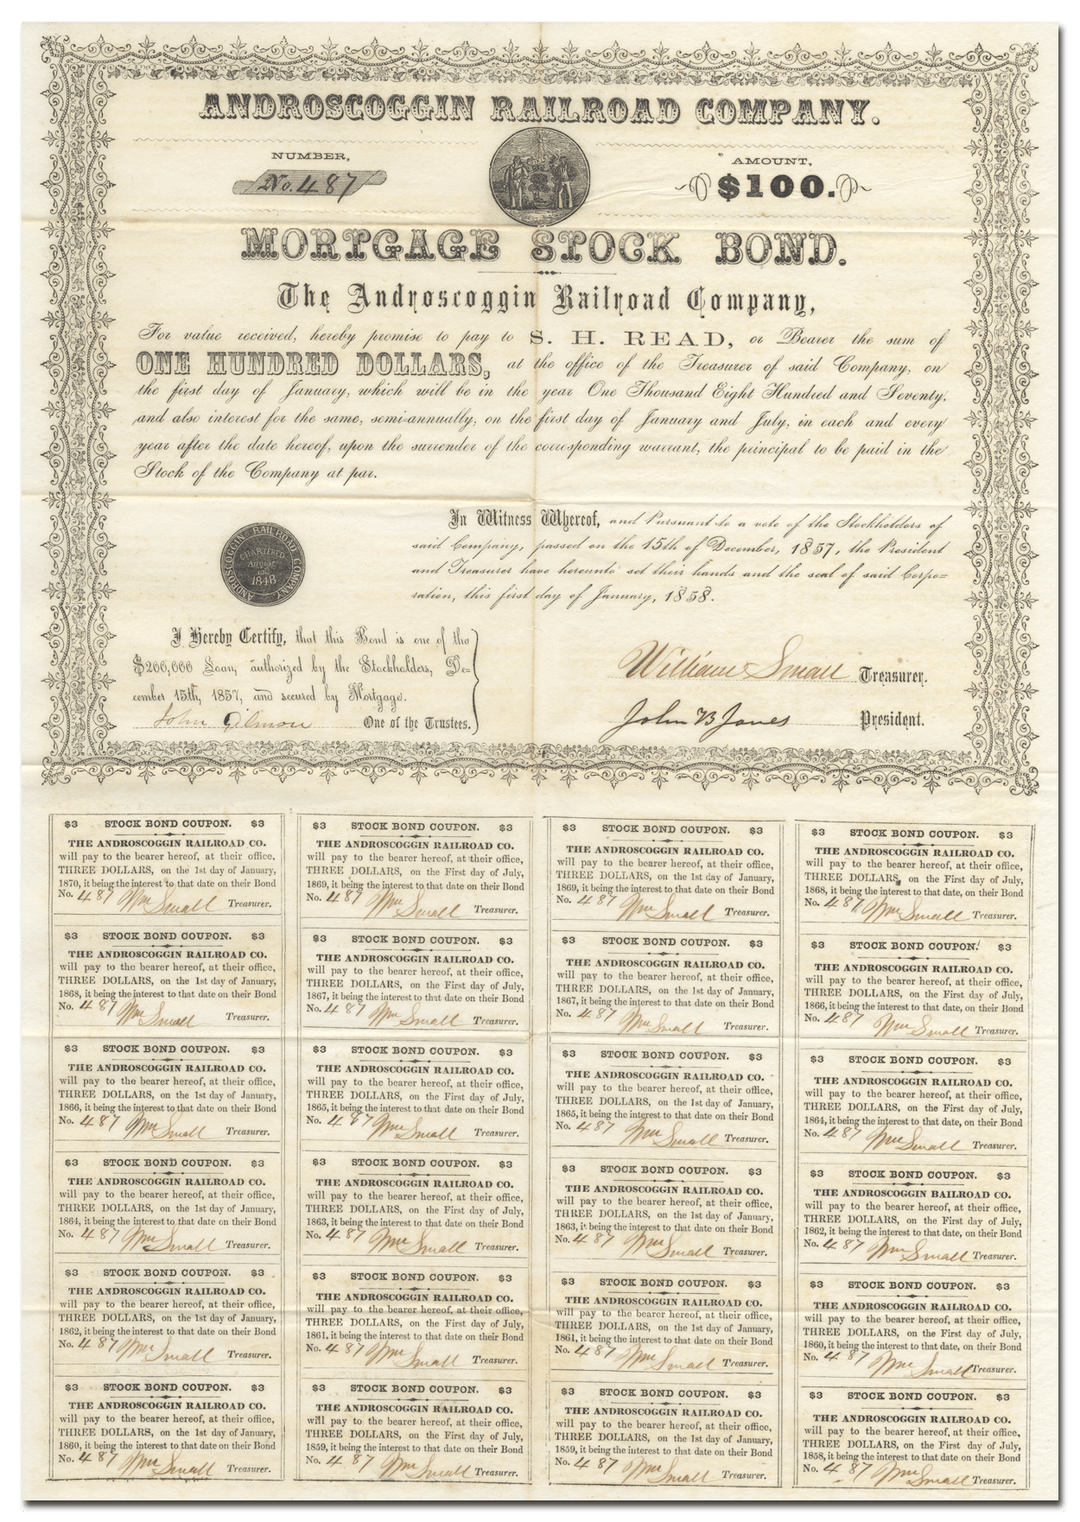 ANDROSCOGGIN RAILROAD COMPANY.
NUMBER,
No. 487
AMOUNT,
$100.
MORTGAGE STOCK BOND.
The Androscoggin Railroad Company,
For value received, hereby promise to pay to S. H. READ, or Bearer the sum of
ONE HUNDRED DOLLARS, at the office of the Treasurer of said Company, on
the first day of January, which will be in the year One Thousand Eight Hundred and Seventy,
and also interest for the same, semi-annually, on the first day of January and July, in each and every
year after the date hereof, upon the surrender of the corresponding warrant, the principal to be paid in the
Stock of the Company at par.
In Witness Whereof, and Pursuant to a vote of the Stockholders of
said Company, passed on the 15th of December, 1857, the President
and Treasurer have hereunto set their hands and the seal of said Corpo=
ration, this first day of January, 1858.
ANDROSCOGGIN RAILROAD COMPANY
CHARTERED
AUGUST
1848
I Hereby Certify, that this Bond is one of the
$200,000 Loan, authorized by the Stockholders, De-
cember 15th, 1857, and secured by Mortgage.
John One of the Trustees.
William Small Treasurer.
John B Jones President.
$3 STOCK BOND COUPON. $3
THE ANDROSCOGGIN RAILROAD CO.
will pay to the bearer hereof, at their office,
THREE DOLLARS, on the 1st day of January,
1870, it being the interest to that date on their Bond
No. 487 Wm Small Treasurer.
$3 STOCK BOND COUPON. $3
THE ANDROSCOGGIN RAILROAD CO.
will pay to the bearer hereof, at their office,
THREE DOLLARS, on the First day of July,
1869, it being the interest to that date on their Bond
No. 487 Wm Small Treasurer.
$3 STOCK BOND COUPON. $3
THE ANDROSCOGGIN RAILROAD CO.
will pay to the bearer hereof, at their office,
THREE DOLLARS, on the 1st day of January,
1869, it being the interest to that date, on their Bond
No. 487 Wm Small Treasurer.
$3 STOCK BOND COUPON. $3
THE ANDROSCOGGIN RAILROAD CO.
will pay to the bearer hereof, at their office,
THREE DOLLARS, on the First day of July,
1868, it being the interest to that date, on their Bond
No. 487 Wm Small Treasurer.
$3 STOCK BOND COUPON. $3
THE ANDROSCOGGIN RAILROAD CO.
will pay to the bearer hereof, at their office,
THREE DOLLARS, on the 1st day of January,
1868, it being the interest to that date on their Bond
No. 487 Wm Small Treasurer.
$3 STOCK BOND COUPON. $3
THE ANDROSCOGGIN RAILROAD CO.
will pay to the bearer hereof, at their office,
THREE DOLLARS, on the First day of July,
1867, it being the interest to that date on their Bond
No. 487 Wm Small Treasurer.
$3 STOCK BOND COUPON. $3
THE ANDROSCOGGIN RAILROAD CO.
will pay to the bearer hereof, at their office,
THREE DOLLARS, on the 1st day of January,
1867, it being the interest to that date on their Bond
No. 487 Wm Small Treasurer.
$3 STOCK BOND COUPON. $3
THE ANDROSCOGGIN RAILROAD CO.
will pay to the bearer hereof, at their office,
THREE DOLLARS, on the First day of July,
1866, it being the interest to that date, on their Bond
No. 487 Wm Small Treasurer.
$3 STOCK BOND COUPON. $3
THE ANDROSCOGGIN RAILROAD CO.
will pay to the bearer hereof, at their office,
THREE DOLLARS, on the 1st day of January,
1866, it being the interest to that date on their Bond
No. 487 Wm Small Treasurer.
$3 STOCK BOND COUPON. $3
THE ANDROSCOGGIN RAILROAD CO.
will pay to the bearer hereof, at their office,
THREE DOLLARS, on the First day of July,
1865, it being the interest to that date on their Bond
No. 487 Wm Small Treasurer.
$3 STOCK BOND COUPON. $3
THE ANDROSCOGGIN RAILROAD CO.
will pay to the bearer hereof, at their office,
THREE DOLLARS, on the 1st day of January,
1865, it being the interest to that date on their Bond
No. 487 Wm Small Treasurer.
$3 STOCK BOND COUPON. $3
THE ANDROSCOGGIN RAILROAD CO.
will pay to the bearer hereof, at their office,
THREE DOLLARS, on the First day of July,
1864, it being the interest to that date, on their Bond
No. 487 Wm Small Treasurer.
$3 STOCK BOND COUPON. $3
THE ANDROSCOGGIN RAILROAD CO.
will pay to the bearer hereof, at their office,
THREE DOLLARS, on the 1st day of January,
1864, it being the interest to that date on their Bond
No. 487 Wm Small Treasurer.
$3 STOCK BOND COUPON. $3
THE ANDROSCOGGIN RAILROAD CO.
will pay to the bearer hereof, at their office,
THREE DOLLARS, on the First day of July,
1863, it being the interest to that date on their Bond
No. 487 Wm Small Treasurer.
$3 STOCK BOND COUPON. $3
THE ANDROSCOGGIN RAILROAD CO.
will pay to the bearer hereof, at their office,
THREE DOLLARS, on the 1st day of January,
1863, it being the interest to that date on their Bond
No. 487 Wm Small Treasurer.
$3 STOCK BOND COUPON. $3
THE ANDROSCOGGIN RAILROAD CO.
will pay to the bearer hereof, at their office,
THREE DOLLARS, on the First day of July,
1862, it being the interest to that date, on their Bond
No. 487 Wm Small Treasurer.
$3 STOCK BOND COUPON. $3
THE ANDROSCOGGIN RAILROAD CO.
will pay to the bearer hereof, at their office,
THREE DOLLARS, on the 1st day of January,
1862, it being the interest to that date on their Bond
No. 487 Wm Small Treasurer.
$3 STOCK BOND COUPON. $3
THE ANDROSCOGGIN RAILROAD CO.
will pay to the bearer hereof, at their office,
THREE DOLLARS, on the First day of July,
1861, it being the interest to that date on their Bond
No. 487 Wm Small Treasurer.
$3 STOCK BOND COUPON. $3
THE ANDROSCOGGIN RAILROAD CO.
will pay to the bearer hereof, at their office,
THREE DOLLARS, on the 1st day of January,
1861, it being the interest to that date on their Bond
No. 487 Wm Small Treasurer.
$3 STOCK BOND COUPON. $3
THE ANDROSCOGGIN RAILROAD CO.
will pay to the bearer hereof, at their office,
THREE DOLLARS, on the First day of July,
1860, it being the interest to that date, on their Bond
No. 487 Wm Small Treasurer.
$3 STOCK BOND COUPON. $3
THE ANDROSCOGGIN RAILROAD CO.
will pay to the bearer hereof, at their office,
THREE DOLLARS, on the 1st day of January,
1860, it being the interest to that date on their Bond
No. 487 Wm Small Treasurer.
$3 STOCK BOND COUPON. $3
THE ANDROSCOGGIN RAILROAD CO.
will pay to the bearer hereof, at their office,
THREE DOLLARS, on the First day of July,
1859, it being the interest to that date on their Bond
No. 487 Wm Small Treasurer.
$3 STOCK BOND COUPON. $3
THE ANDROSCOGGIN RAILROAD CO.
will pay to the bearer hereof, at their office,
THREE DOLLARS, on the 1st day of January,
1859, it being the interest to that date on their Bond
No. 487 Wm Small Treasurer.
$3 STOCK BOND COUPON. $3
THE ANDROSCOGGIN RAILROAD CO.
will pay to the bearer hereof, at their office,
THREE DOLLARS, on the First day of July,
1858, it being the interest to that date, on their Bond
No. 487 Wm Small Treasurer.